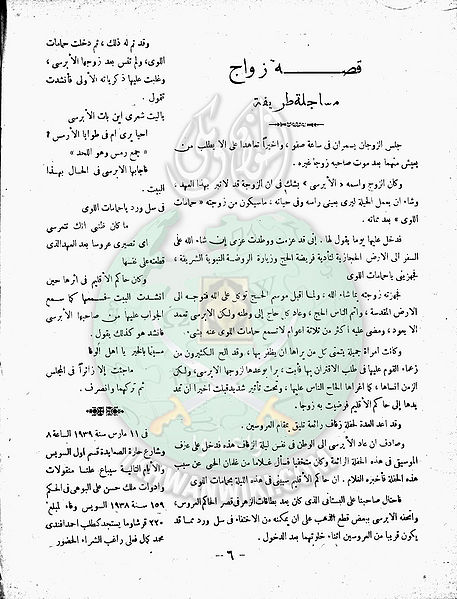 قصة زواج
مساجلة طريفة
جلس الزوجان يسمران في ساعة صفو ، واخيراً تعاهدا على الا يطلب من
يعيش منهما بعد موت صاحبه زوجاً غيره .
وكان الزوج واسمه « الأبرسي » يشك في ان الزوجة قد لا تبر بهذا العهد ،
وشاء ان يعمل الحيلة ليرى بعيني رأسه وفي حياته ، ماسيكون من زوجته « حمامات
اللوى » بعد مماته .
فدخل عليها يوما يقول لها . إنى قد عزمت ووطدت عزمى إن شاء الله على
السفر الى الارض الحجازية لتأدية فريضة الحج وزيارة الروضة النبوية الشريفة ،
فجهزينى ياحمامات اللوى
فجهزته زوجته بما شاء الله ، ولما اقبل موسم الحج توكل على الله فتوجه الى
الارض المقدسة ، وأتم الناس الحج ، وعاد كل حاج إلى وطنه ولكن الابرسى تعمد
الا يعود ، ومضى عليه ا كثر من ثلاثة اعوام لا تسمع حمامات اللوى عنه بشى .
وكانت امرأة جميلة يتمنى كل من يراها ان يظفر بها ، وقد ألح الكثيرون من
زعماء القوم عليها فى طلب الاقتران بها فأبت ، برا بوعدها لزوجها الابرسى، ولكن
الزمن انساها ، كما اغراها الحاح الناس عليها ، وتحت تأثير شديد قبلت اخيرا ان تمد
يدها إلى حاكم الأقليم فرضيت به زوجا.
وقد اعد العدة لحفلة زفاف رائعة تليق بمقام العروسين .
وصادف ان عاد الأبرسى الى الوطن فى نفس ليلة الزفاف هذه فدخل على عزف
الموسيقى فى هذه الحفلة الرائعة وكان متخفيا فسأل غلاما من غلمان الحى عن سبب
هذه الحفلة فأخبره الغلام . ان حاكم الاقليم سيبنى فى هذه الليلة بحمامات اللوى
فاحتال صاحبنا على البستانى الذى كان بعد بطاقات الزهر فى قصر الحاكم العروس،
واتحفه الأبرسى ببعض قطع الذهب على ان يمكنه من الاختفاء فى سل ورد مما قد
يكون قريبا من العروسين اثناء خلوتهما بعد الدخول .
وقد تم له ذلك ، ثم دخلت حمامات
اللوى، ولم تنس بعد زوجها الأبرسى ،
وغلبت عليها ذكرياته الأولى فأنشدت
تقول .
ياليت شعرى اين بات الأبرسى
احيا يرى ام فى طوايا الأرمس ؟
« جمع رمس وهو اللحد »
فاجابها الابرسى فى الحال بهذا
البيت .
فى سل ورد ياحمامات اللوى
ما كان ظنى انك تتعرسى
اى تصيرى عروسا بعد العهد الذى
قطعته على نفسها
وكان حاكم الأقليم فى اثرها حين
انشدت البيت فسمعها كما سمع
الجواب عليها من صاحبها الأبرسى
فأنشد هو كذلك يقول .
مسيتما بالخير يا اهل الوفا
ماجئت إلا زائراً فى المجلس
ثم تركهما وانصرف .
فى ١١ مارس سنة ١٩٣٩ الساعة ٨
وشارع حارة الصدايدة قسم اول السويس
والأيام التالية سيباع علنا منقولات
وادوات ملك حسن على البوهى فى الحكم
١٥٩ سنة ١٩٣٨ السويس وفاء لمبلغ
٢٢٠ قرشا وما يستجد كطلب احمد افندى
محمد كمال فعلى راغب الشراء الحضور
— ٦ —